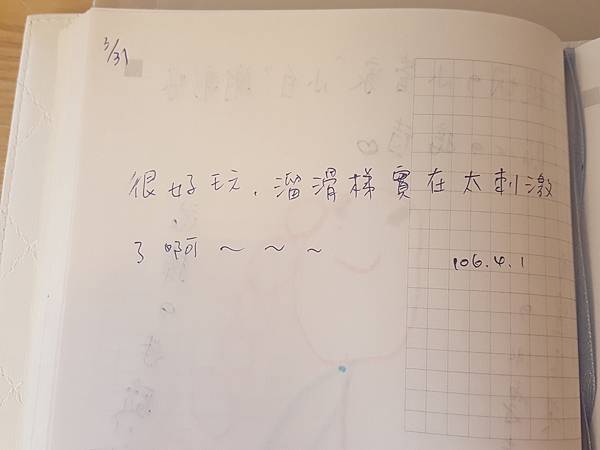 3/31
很好玩，溜滑梯實在太刺激
了啊～～～
106.4.1